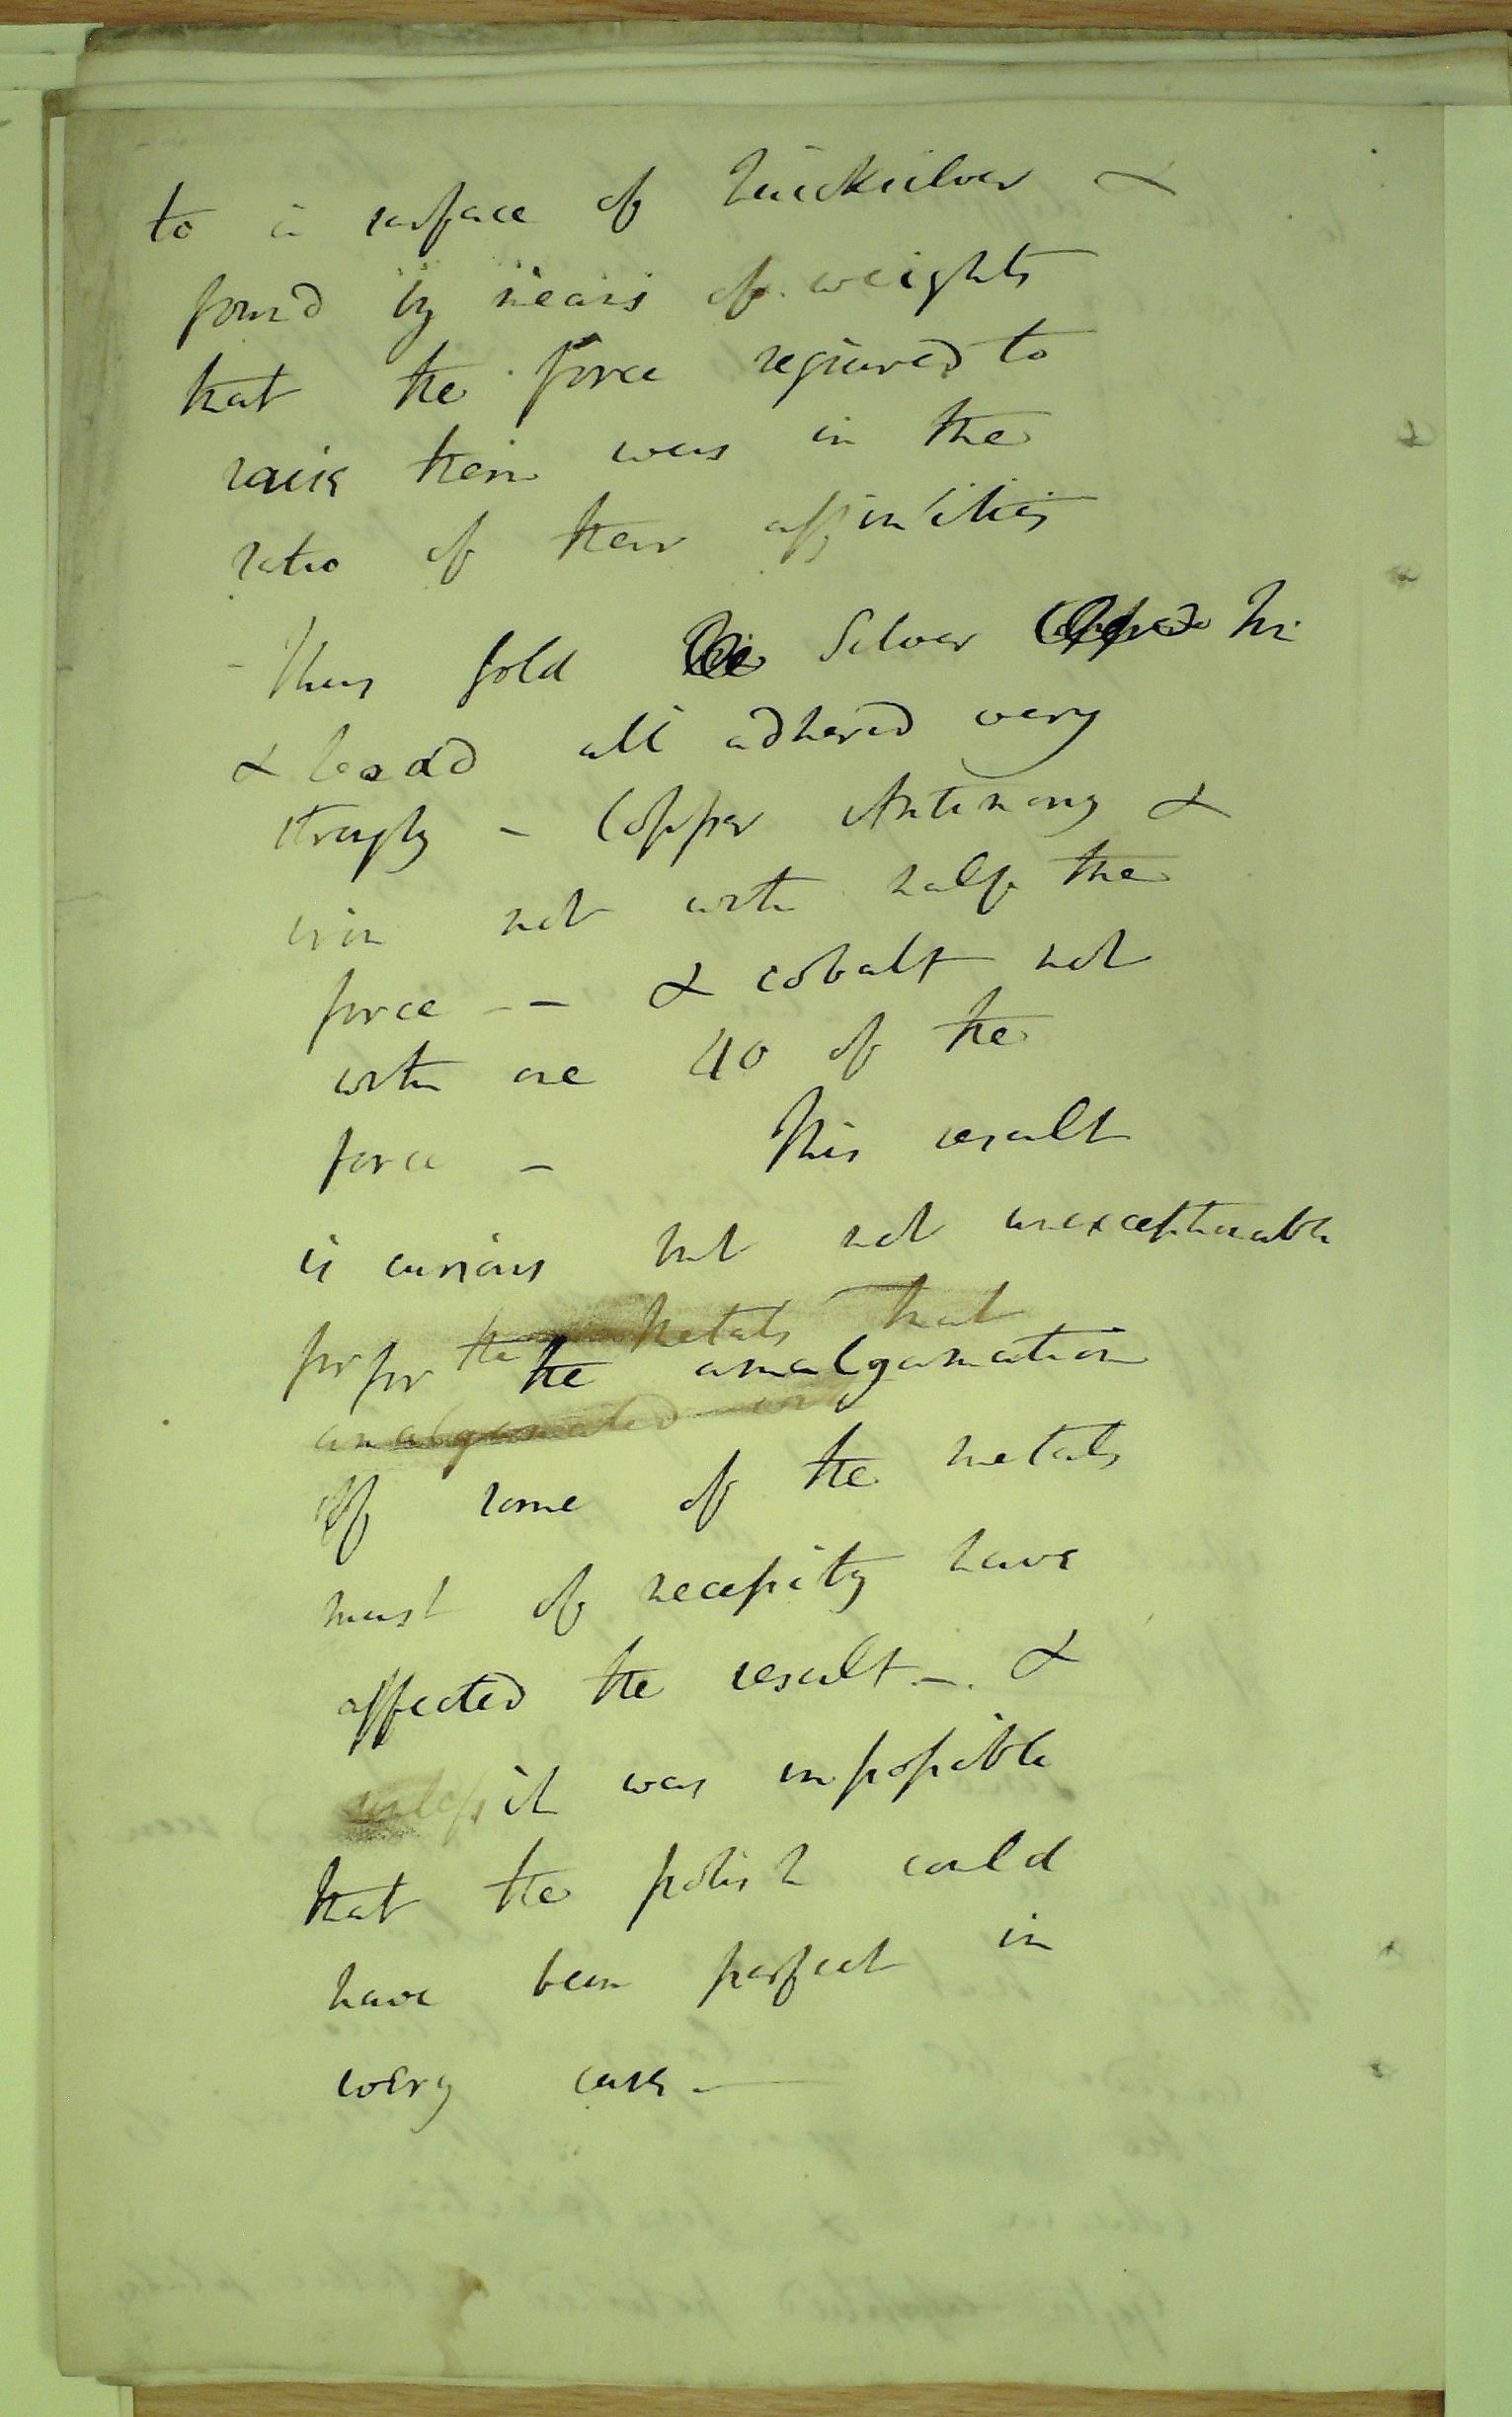 to a surface of Quicksilver &
found by means of weights
that the force required to
raise them was in the
ratio of their affinities
- Thus gold Silver Tin
& lead all adhered very
strongly - Copper Antimony &
iron not with half the
force -- & cobalt not
with one 40 of the
force - This result
is curious but not unexceptionable
for the metals that
for the amalgamation
amalgamated
of some of the metals
must of necessity have
affected the result - &
unless it was impossible
that the polish could
have been perfect in
every case -